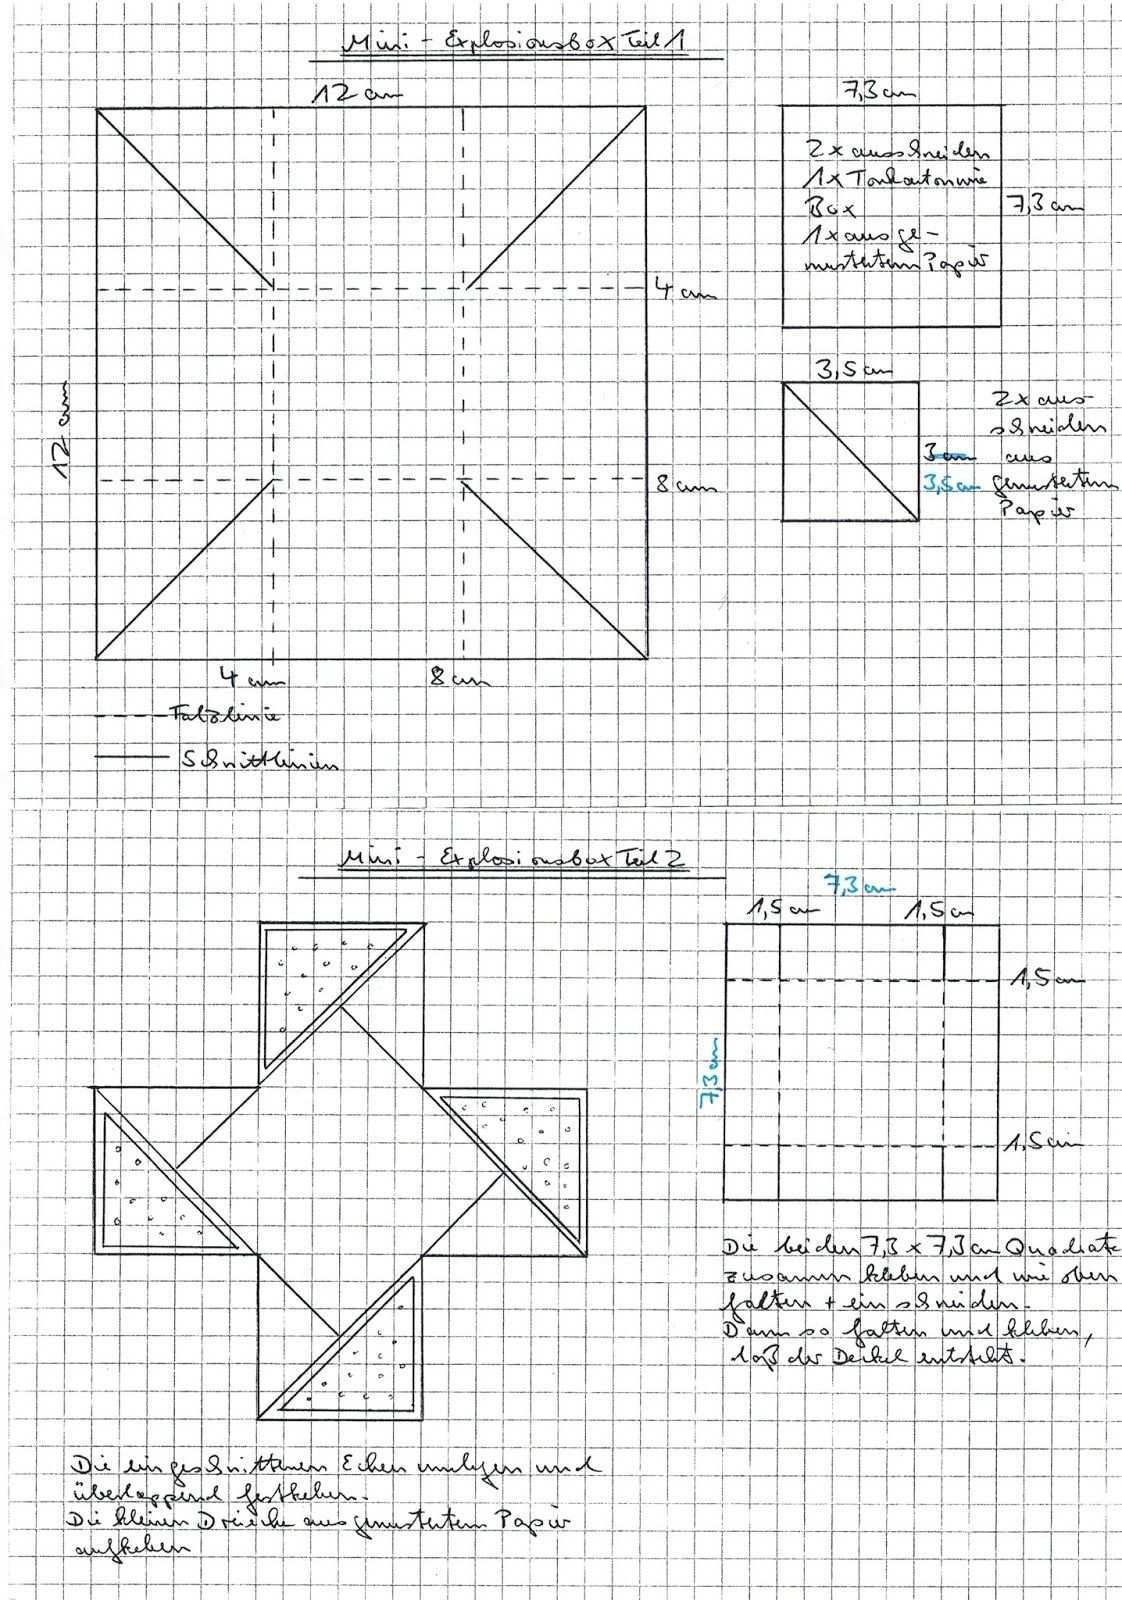 Mini - Explosionsbox Teil 1
12 cm
7,3 cm
2x ausschneiden
1x Tonkarton wie
Box
1x aus ge-
mustertem Papier
7,3 cm
4 cm
3,5 cm
12 cm
2x aus-
schneiden
3 cm aus
8 cm
3,5 cm gemustertem
Papier
4 cm
8 cm
Falzlinie
Schnittlinien
Mini - Explosionsbox Teil 2
7,3 cm
1,5 cm
1,5 cm
1,5 cm
7,3 cm
1,5 cm
Die beiden 7,3 x 7,3 cm Quadrate
zusammen kleben und wie oben
falten + einschneiden.
Dann so falten und kleben,
daß der Deckel entsteht.
Die eingeschnittenen Ecken umlegen und
überlappend festkleben.
Die kleinen Dreiecke aus gemustertem Papier
aufkleben